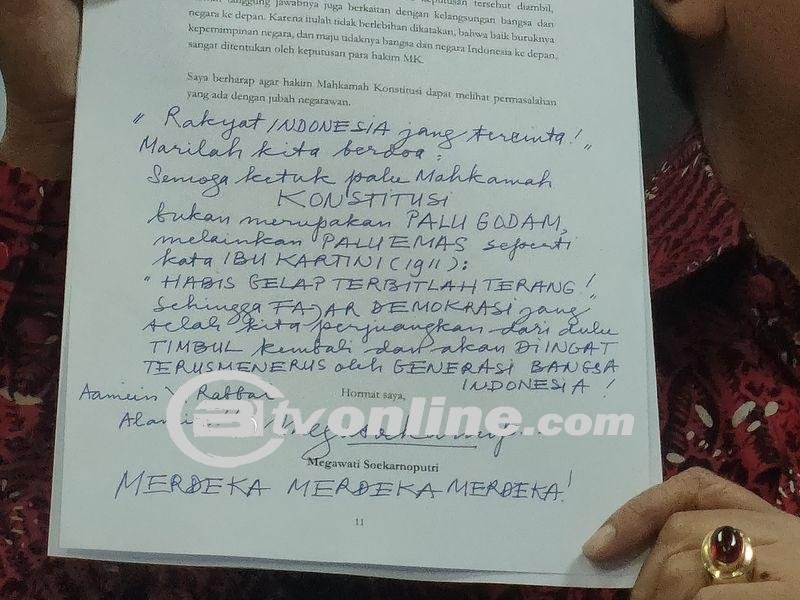 keputusan tersebut diambil,
tanggung jawabnya juga berkaitan dengan kelangsungan bangsa dan
negara ke depan. Karena itulah tidak berlebihan dikatakan, bahwa baik buruknya
kepemimpinan negara, dan maju tidaknya bangsa dan negara Indonesia ke depan,
sangat ditentukan oleh keputusan para hakim MK.
Saya berharap agar hakim Mahkamah Konstitusi dapat melihat permasalahan
yang ada dengan jubah negarawan.
" Rakyat INDONESIA jang tercinta! "
Marilah kita berdoa :
Semoga ketuk palu Mahkamah
KONSTITUSI
bukan merupakan PALU GODAM,
melainkan PALU EMAS seperti
kata IBU KARTINI (1911) :
" HABIS GELAP TERBITLAH TERANG! "
Sehingga FAJAR DEMOKRASI jang
telah kita perjuangkan dari dulu
TIMBUL kembali dan akan DIINGAT
TERUSMENERUS oleh GENERASI BANGSA
INDONESIA !
Aamiin Y, Rabbal
Hormat saya,
Btvonline.com
Megawati Soekarnoputri
MERDEKA MERDEKA MERDEKA!
11